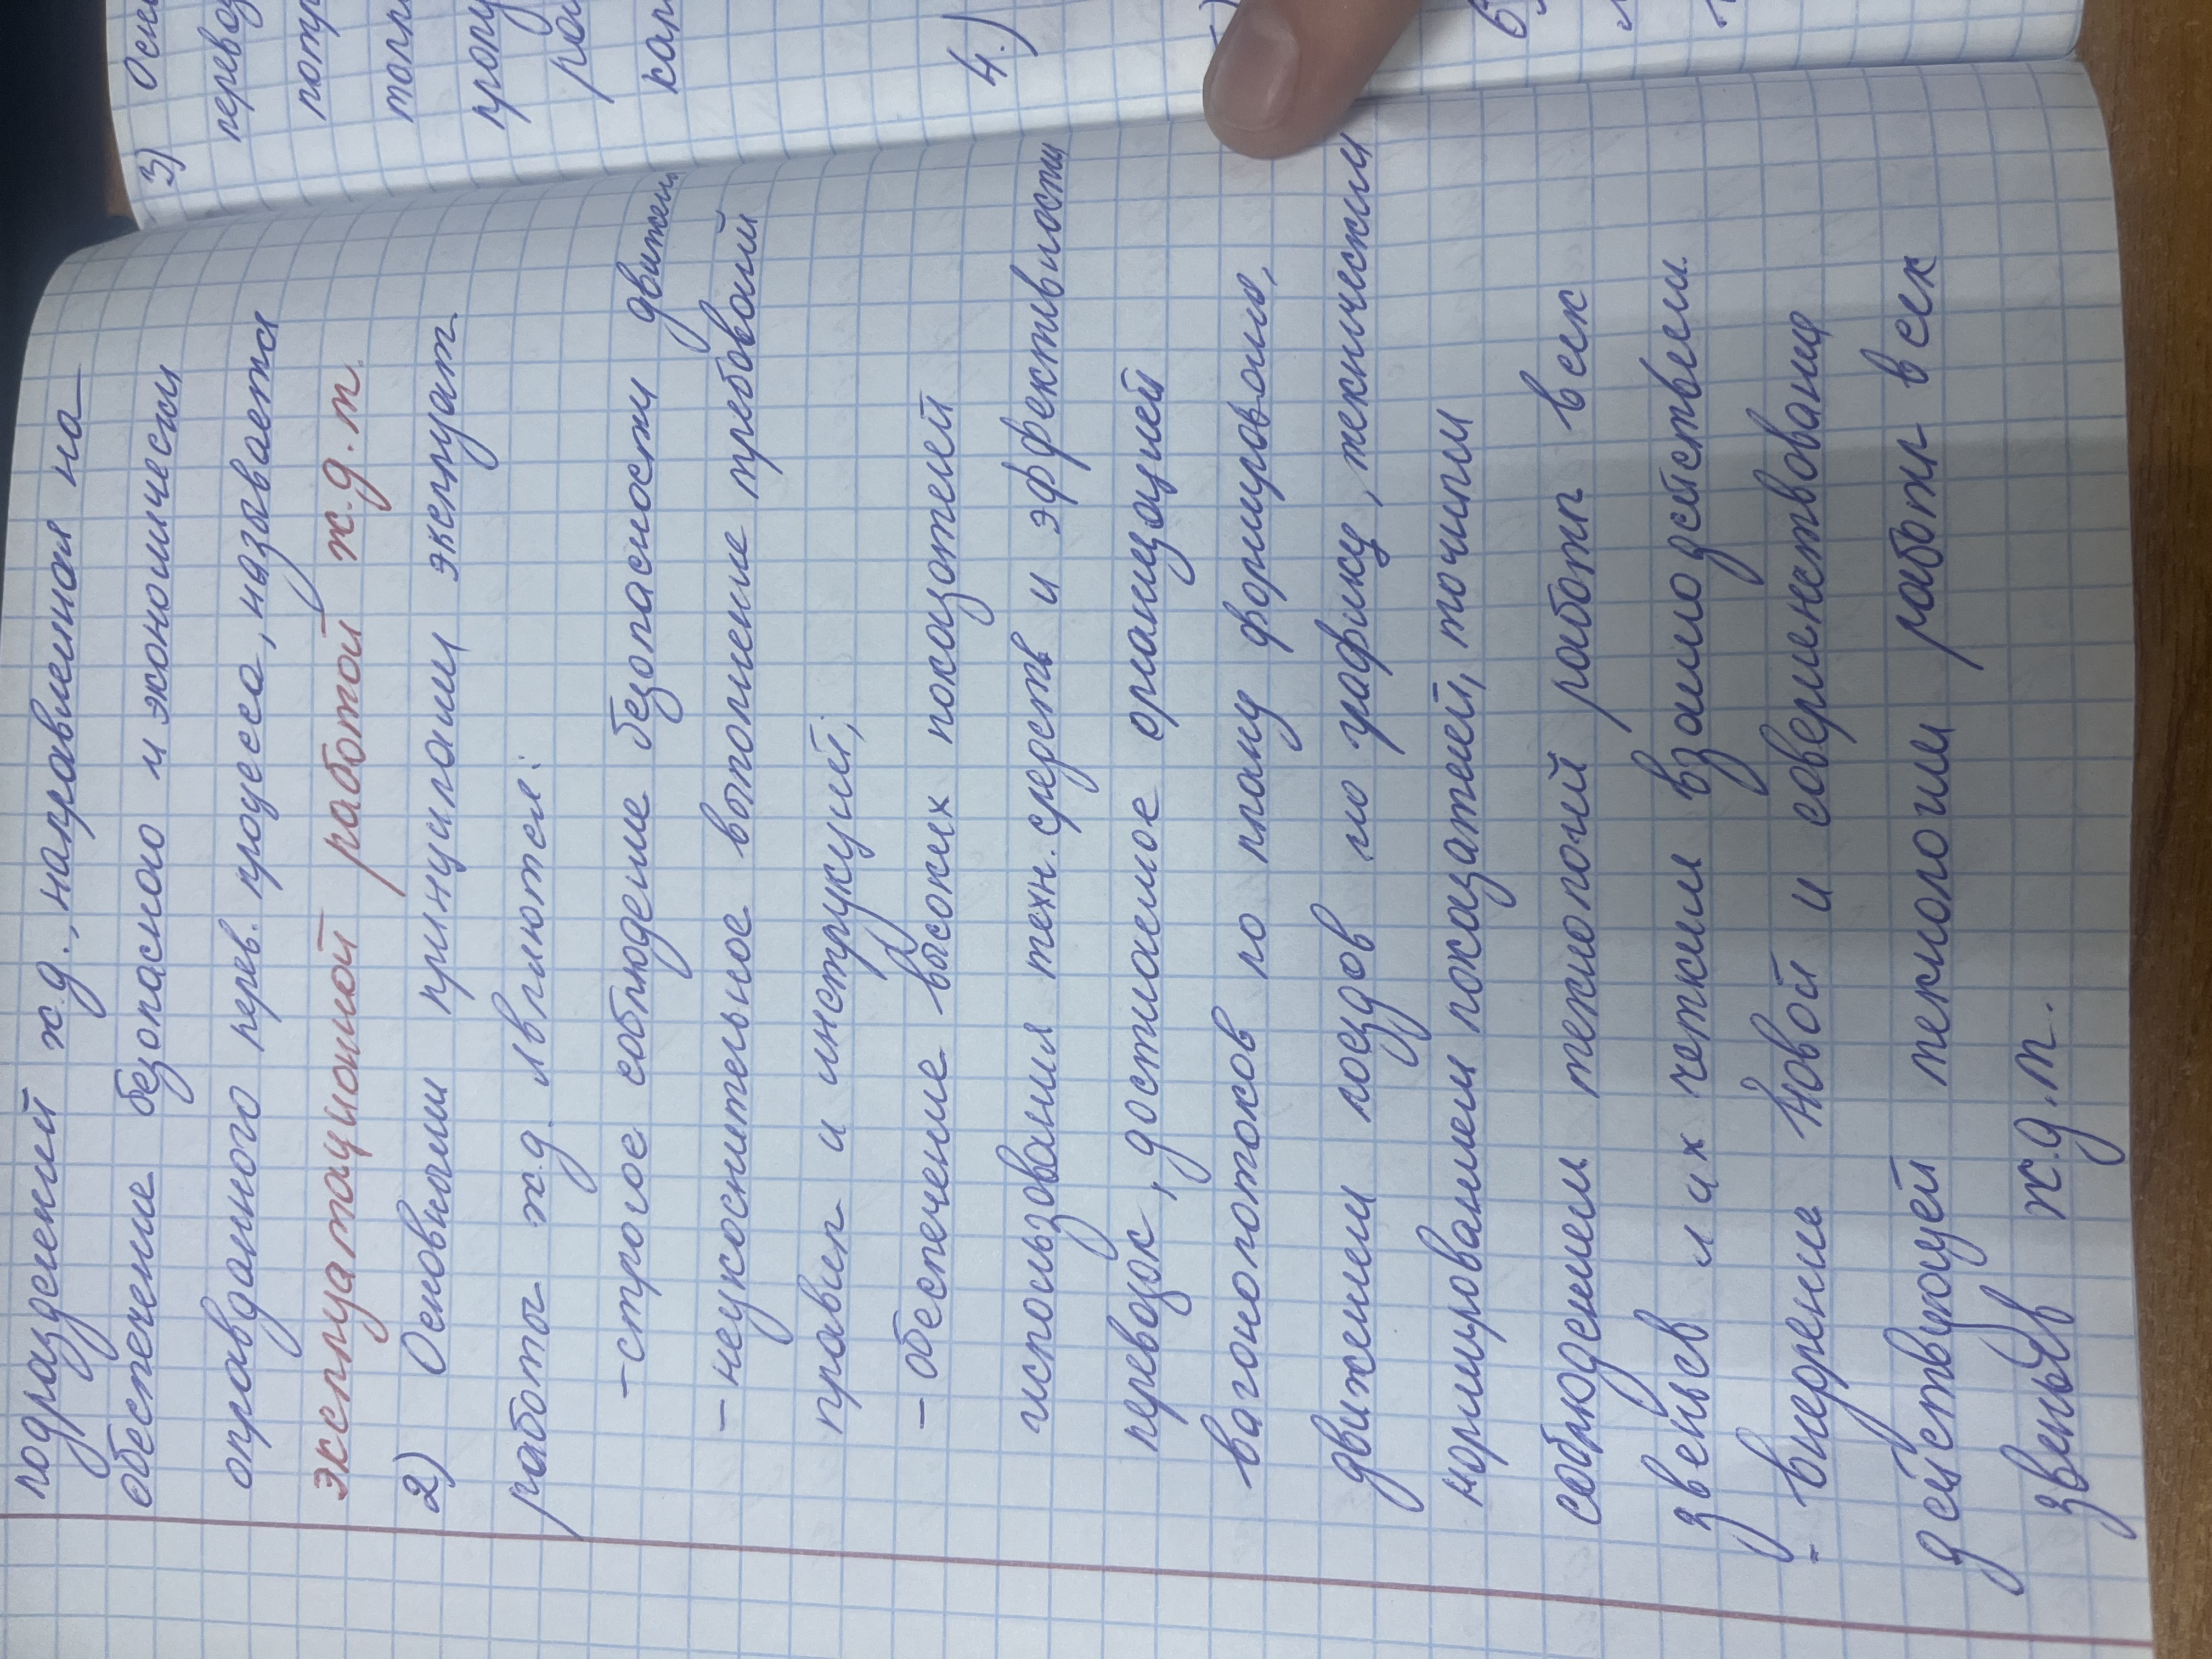 подразделений ж.д., направленная на
обеспечение безопасного и экономически
оправданного перев. процесса, называется
эксплуатационной работой ж.д.т
2) Основными принципами эксплуат
работы ж.д. являются:
- строгое соблюдение безопасности движен.
- неукоснительное выполнение требований
правил и инструкций;
- обеспечение высоких показателей
использования техн. средств и эффективности
перевозок, достигаемое организацией
вагонопотоков по плану формирования,
движением поездов по графику, техническим
нормированием показателей, точным
соблюдением технологий работы всех
звеньев и их четким взаимодействием.
- внедрение новой и совершенствование
действующей технологии работы всех
звеньев ж.д.т.
3) Осн
перевоз
потр
топл
пропу
ра
кар
4.)